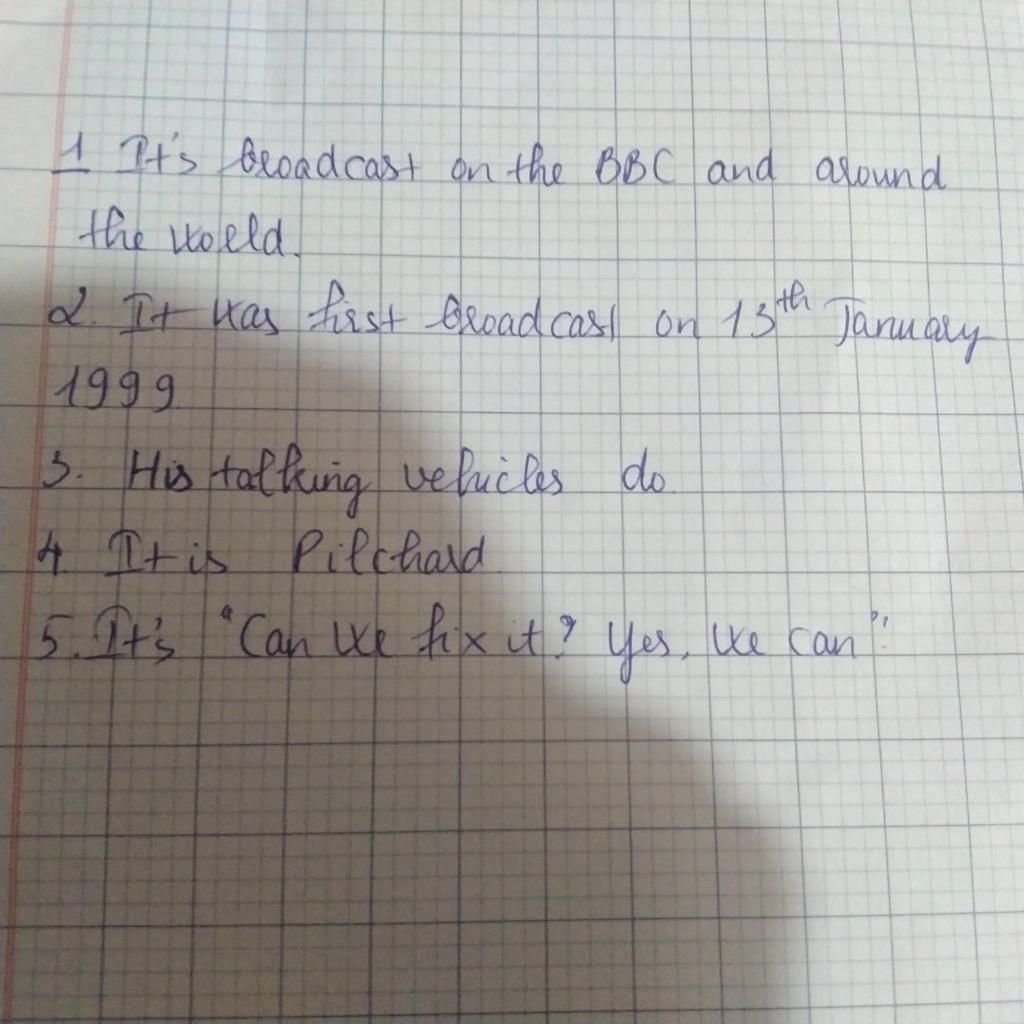 1 It's broadcast on the BBC and around
the world.
2. It was first broadcast on 13th January
1999
3. His talking vehicles do.
4. It is Pilchard
5. It's "Can we fix it? Yes, we can".